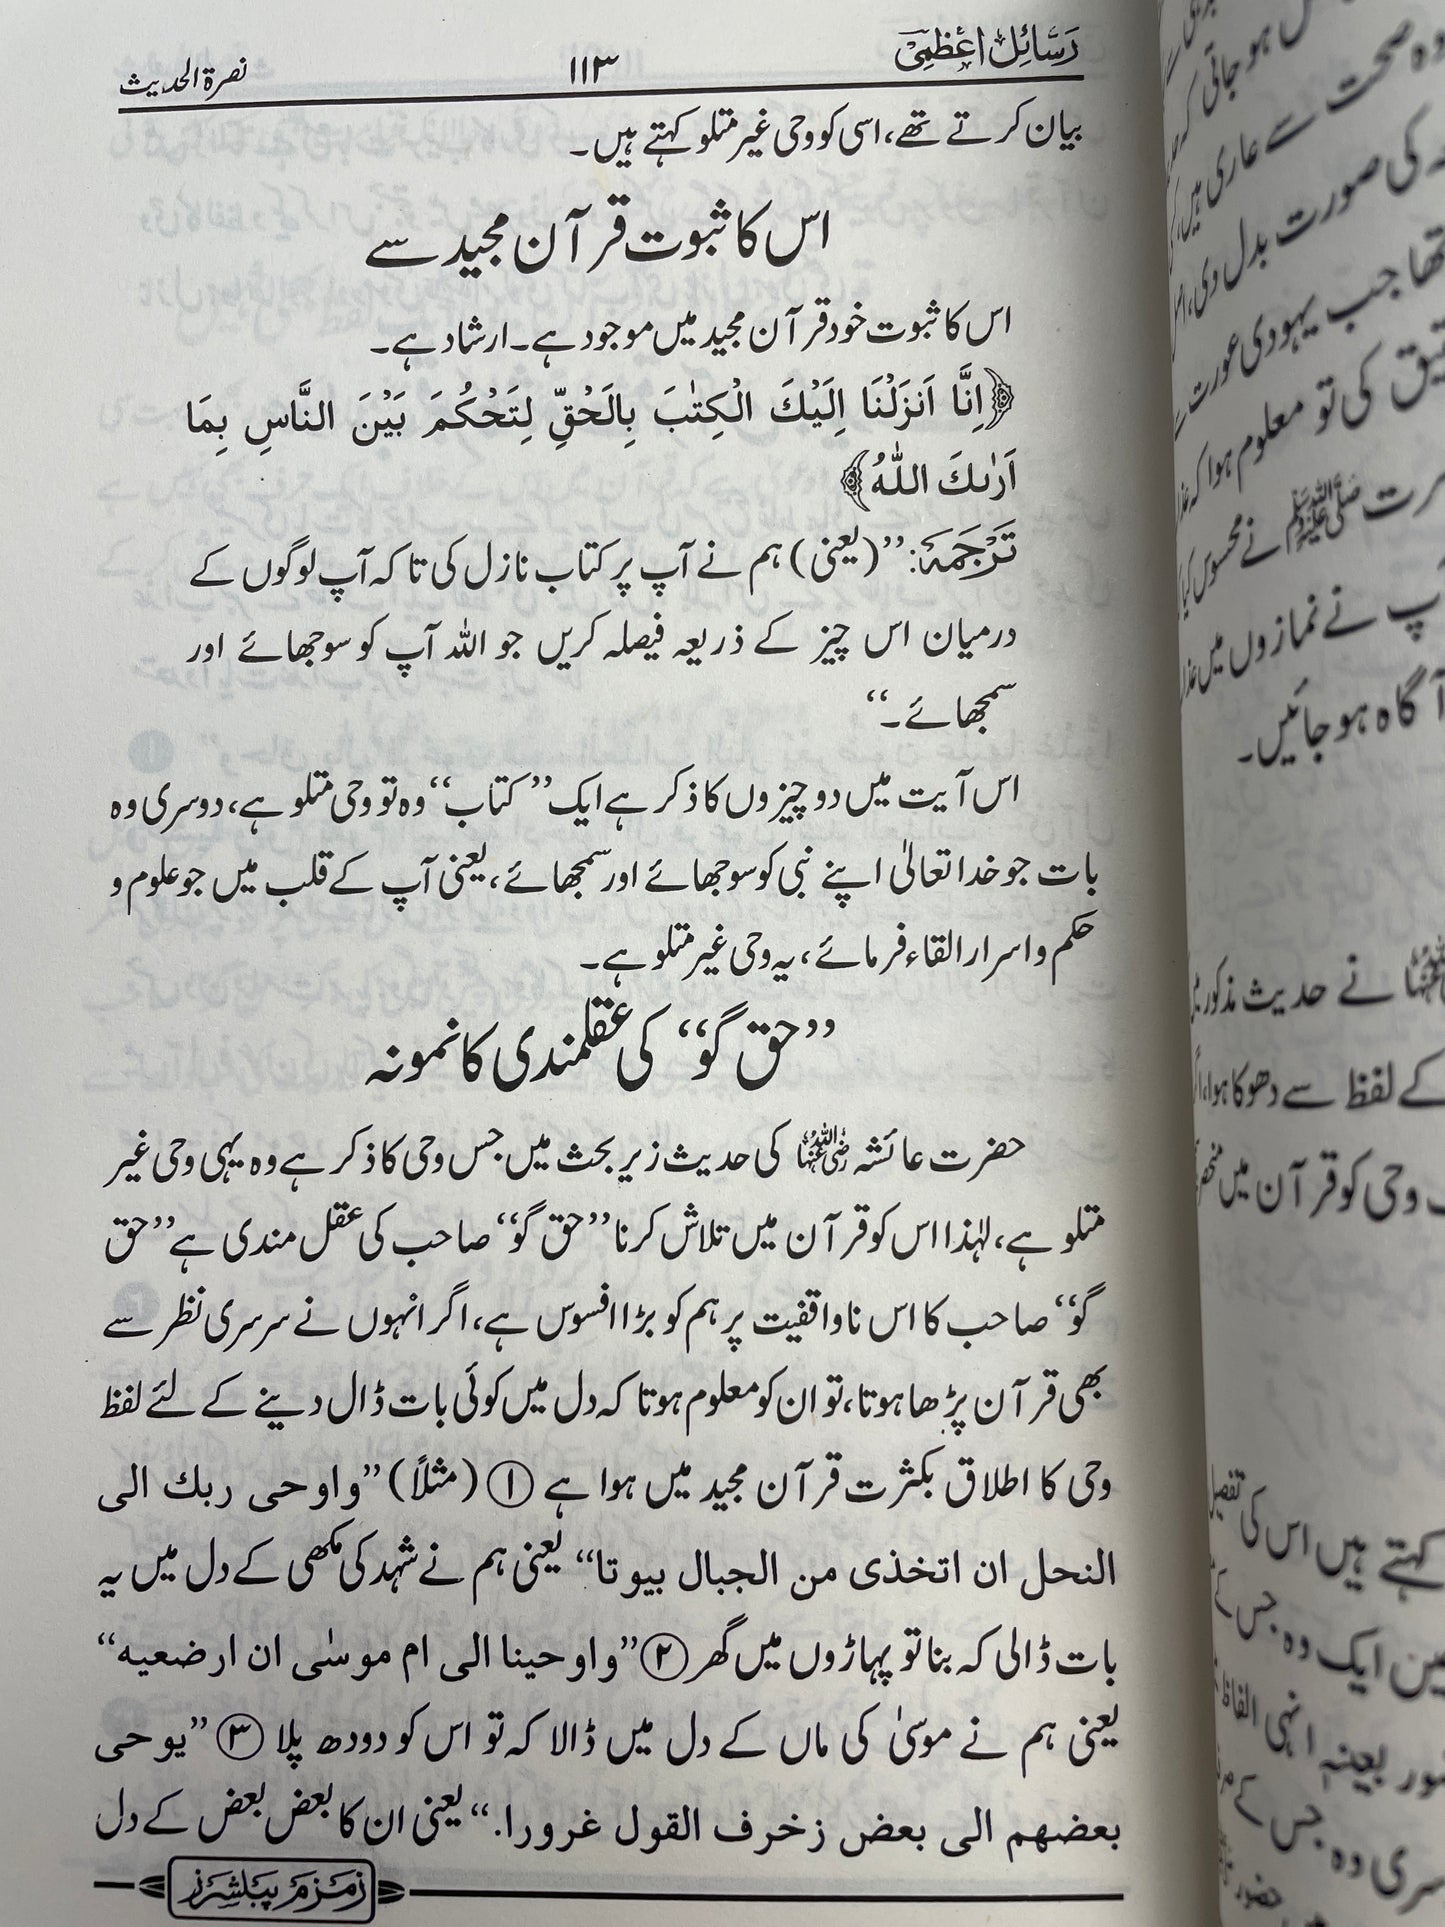 رسائل اعظمی ۱۱۳ نصرة الحدیث
بیان کرتے تھے، اسی کو وحی غیر متلو کہتے ہیں۔
اس کا ثبوت قرآن مجید سے
اس کا ثبوت خود قرآن مجید میں موجود ہے۔ ارشاد ہے۔
﴿اِنَّا اَنزَلْنَا اِلَيْكَ الْكِتٰبَ بِالَحْقِّ لِتَحْكُمَ بَيْنَ النَّاسِ بِمَا
اَرٰىكَ اللّٰهُ﴾
تَرْجَمَہ: ’’(یعنی) ہم نے آپ پر کتاب نازل کی تاکہ آپ لوگوں کے
درمیان اس چیز کے ذریعہ فیصلہ کریں جو اللہ آپ کو سوجھائے اور
سمجھائے۔‘‘
اس آیت میں دو چیزوں کا ذکر ہے ایک ’’کتاب‘‘ وہ تو وحی متلو ہے، دوسری وہ
بات جو خدا تعالیٰ اپنے نبی کو سوجھائے اور سمجھائے، یعنی آپ کے قلب میں جو علوم و
حکم و اسرار القاء فرمائے، یہ وحی غیر متلو ہے۔
’’حق گو‘‘ کی عقلمندی کا نمونہ
حضرت عائشہ رضی اللہ عنہا کی حدیث زیر بحث میں جس وحی کا ذکر ہے وہ یہی وحی غیر
متلو ہے، لہٰذا اس کو قرآن میں تلاش کرنا ’’حق گو‘‘ صاحب کی عقل مندی ہے ’’حق
گو‘‘ صاحب کا اس ناواقفیت پر ہم کو بڑا افسوس ہے، اگر انہوں نے سرسری نظر سے
بھی قرآن پڑھا ہوتا، تو ان کو معلوم ہوتا کہ دل میں کوئی بات ڈال دینے کے لئے لفظ
وحی کا اطلاق بکثرت قرآن مجید میں ہوا ہے ① (مثلاً) ’’واوحی ربك الی
النحل ان اتخذی من الجبال بیوتا‘‘ یعنی ہم نے شہد کی مکھی کے دل میں یہ
بات ڈالی کہ بنا تو پہاڑوں میں گھر ② ’’واوحینا الی ام موسٰی ان ارضعیه‘‘
یعنی ہم نے موسیٰ کی ماں کے دل میں ڈالا کہ تو اس کو دودھ پلا ③ ’’یوحی
بعضهم الی بعض زخرف القول غرورا.‘‘ یعنی ان کا بعض بعض کے دل
زمزم پبلشرز
وہ صحت سے عاری ہیں،
کی صورت بدل دی،
تھا جب یہودی عورت
کی تو معلوم ہوا کہ
صلی اللہ علیہ وسلم نے محسوس کیا
نے نمازوں میں
آگاہ ہو جائیں۔
نے حدیث مذکور میں
کے لفظ سے دھوکا ہوا،
وحی کو قرآن میں منحصر
کہتے ہیں اس کی تفصیل
ایک وہ جس کے
بعینہ انہی الفاظ
وہ جس کے